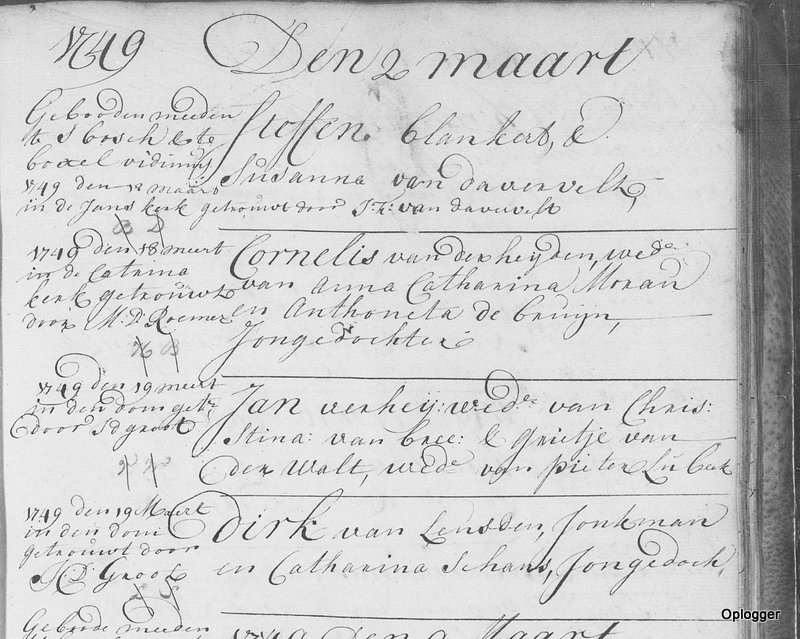 1749 Den 2 maart
Gebooden meeden
te S bosch & te
boxel vidimus
1749 den 18 maart
in de Jans kerk getrouwt door J: F: van davervelt
Stoffen Clankert, &
Susanna van davervelt,
B D
1749 den 18 meert
in de Catrina
kerk getrouwt
door M: D: Roemer
Cornelis van der heyden, wede
van Anna Catharina Morau
en Anthoneta de bruijn,
Jongedochter
H B
1749 den 19 meert
in den dom getr
door S D groot
Jan verheij: wede van Chris:
Stina: van bree: & grietje van
der Walt, wede van pieter Lubeek
1749 den 19 Maert
in den dom
getrouwt door
S D: Groot
Dirk van Leusden, Jonkman
en Catharina Schans, Jongedoch,
Geboode meeden
1749 Den 9 Maart
Oplogger